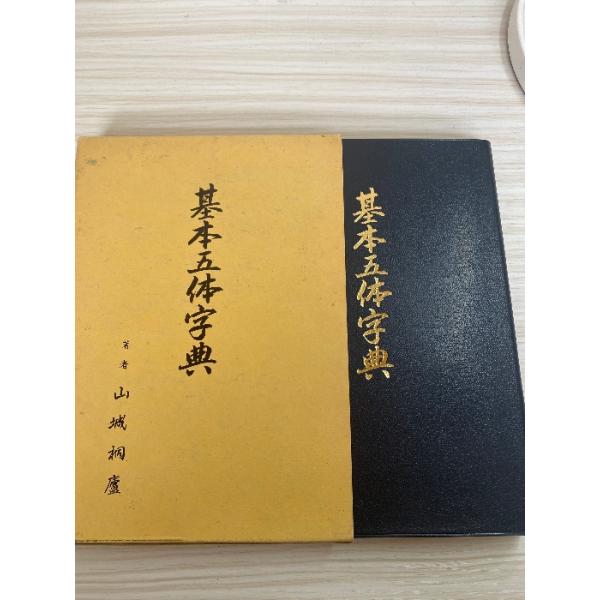 基本五体字典
著者 山城桐廬
基本五体字典